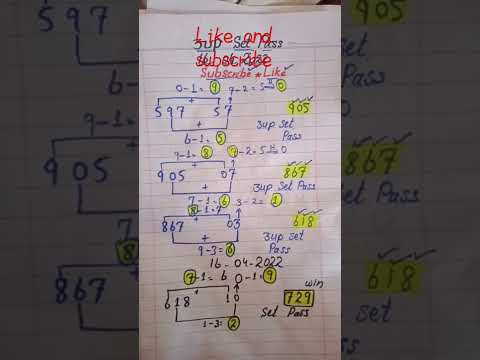 Like and
subscribe
3up Set Pass
Subscribe & Like
0-1= 9 7-2= 5 0
597 57 905
6-1= 5 3up Set
Pass
9-1= 8 7-2=5 0
905 07 867
3up Set
Pass
7-1= 6 3-2= 1
8-1=7
867 03 618
3up Set
Pass
9-3= 6
16-04-2022
7-1= 6 0-1= 9 win
618 10 729
Set Pass
1-3= 2
7
8
867
618
Set Pass